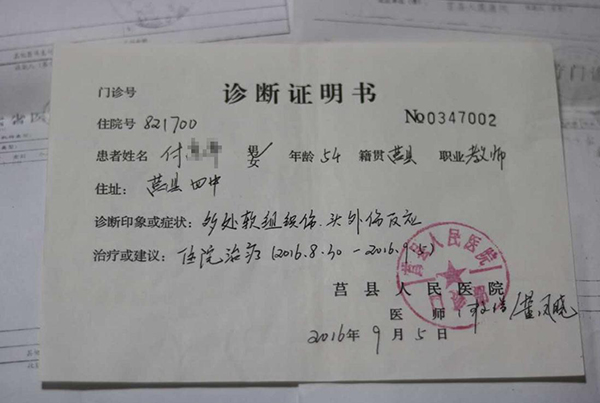 诊断证明书
门诊号
住院号 821700 No0347002
患者姓名 付 男/女 年龄 54 籍贯 莒县 职业 教师
住址: 莒县四中
诊断印象或症状: 多处软组织伤.头外伤反应
治疗或建议: 住院治疗(2016.8.30-2016.9.5)
莒县人民医院
莒县人民医院
医师
2016年9月5日